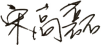 宋高磊